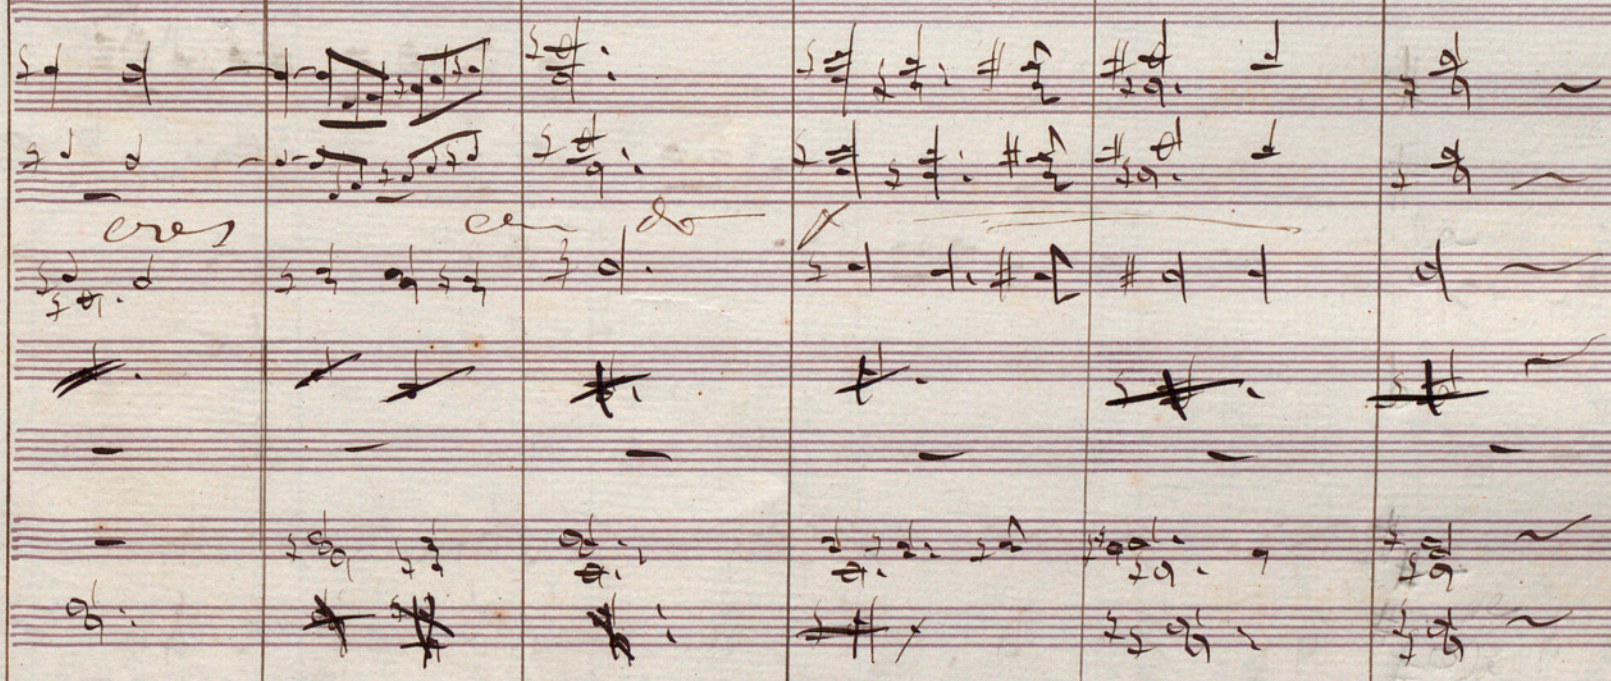 cres cen do f